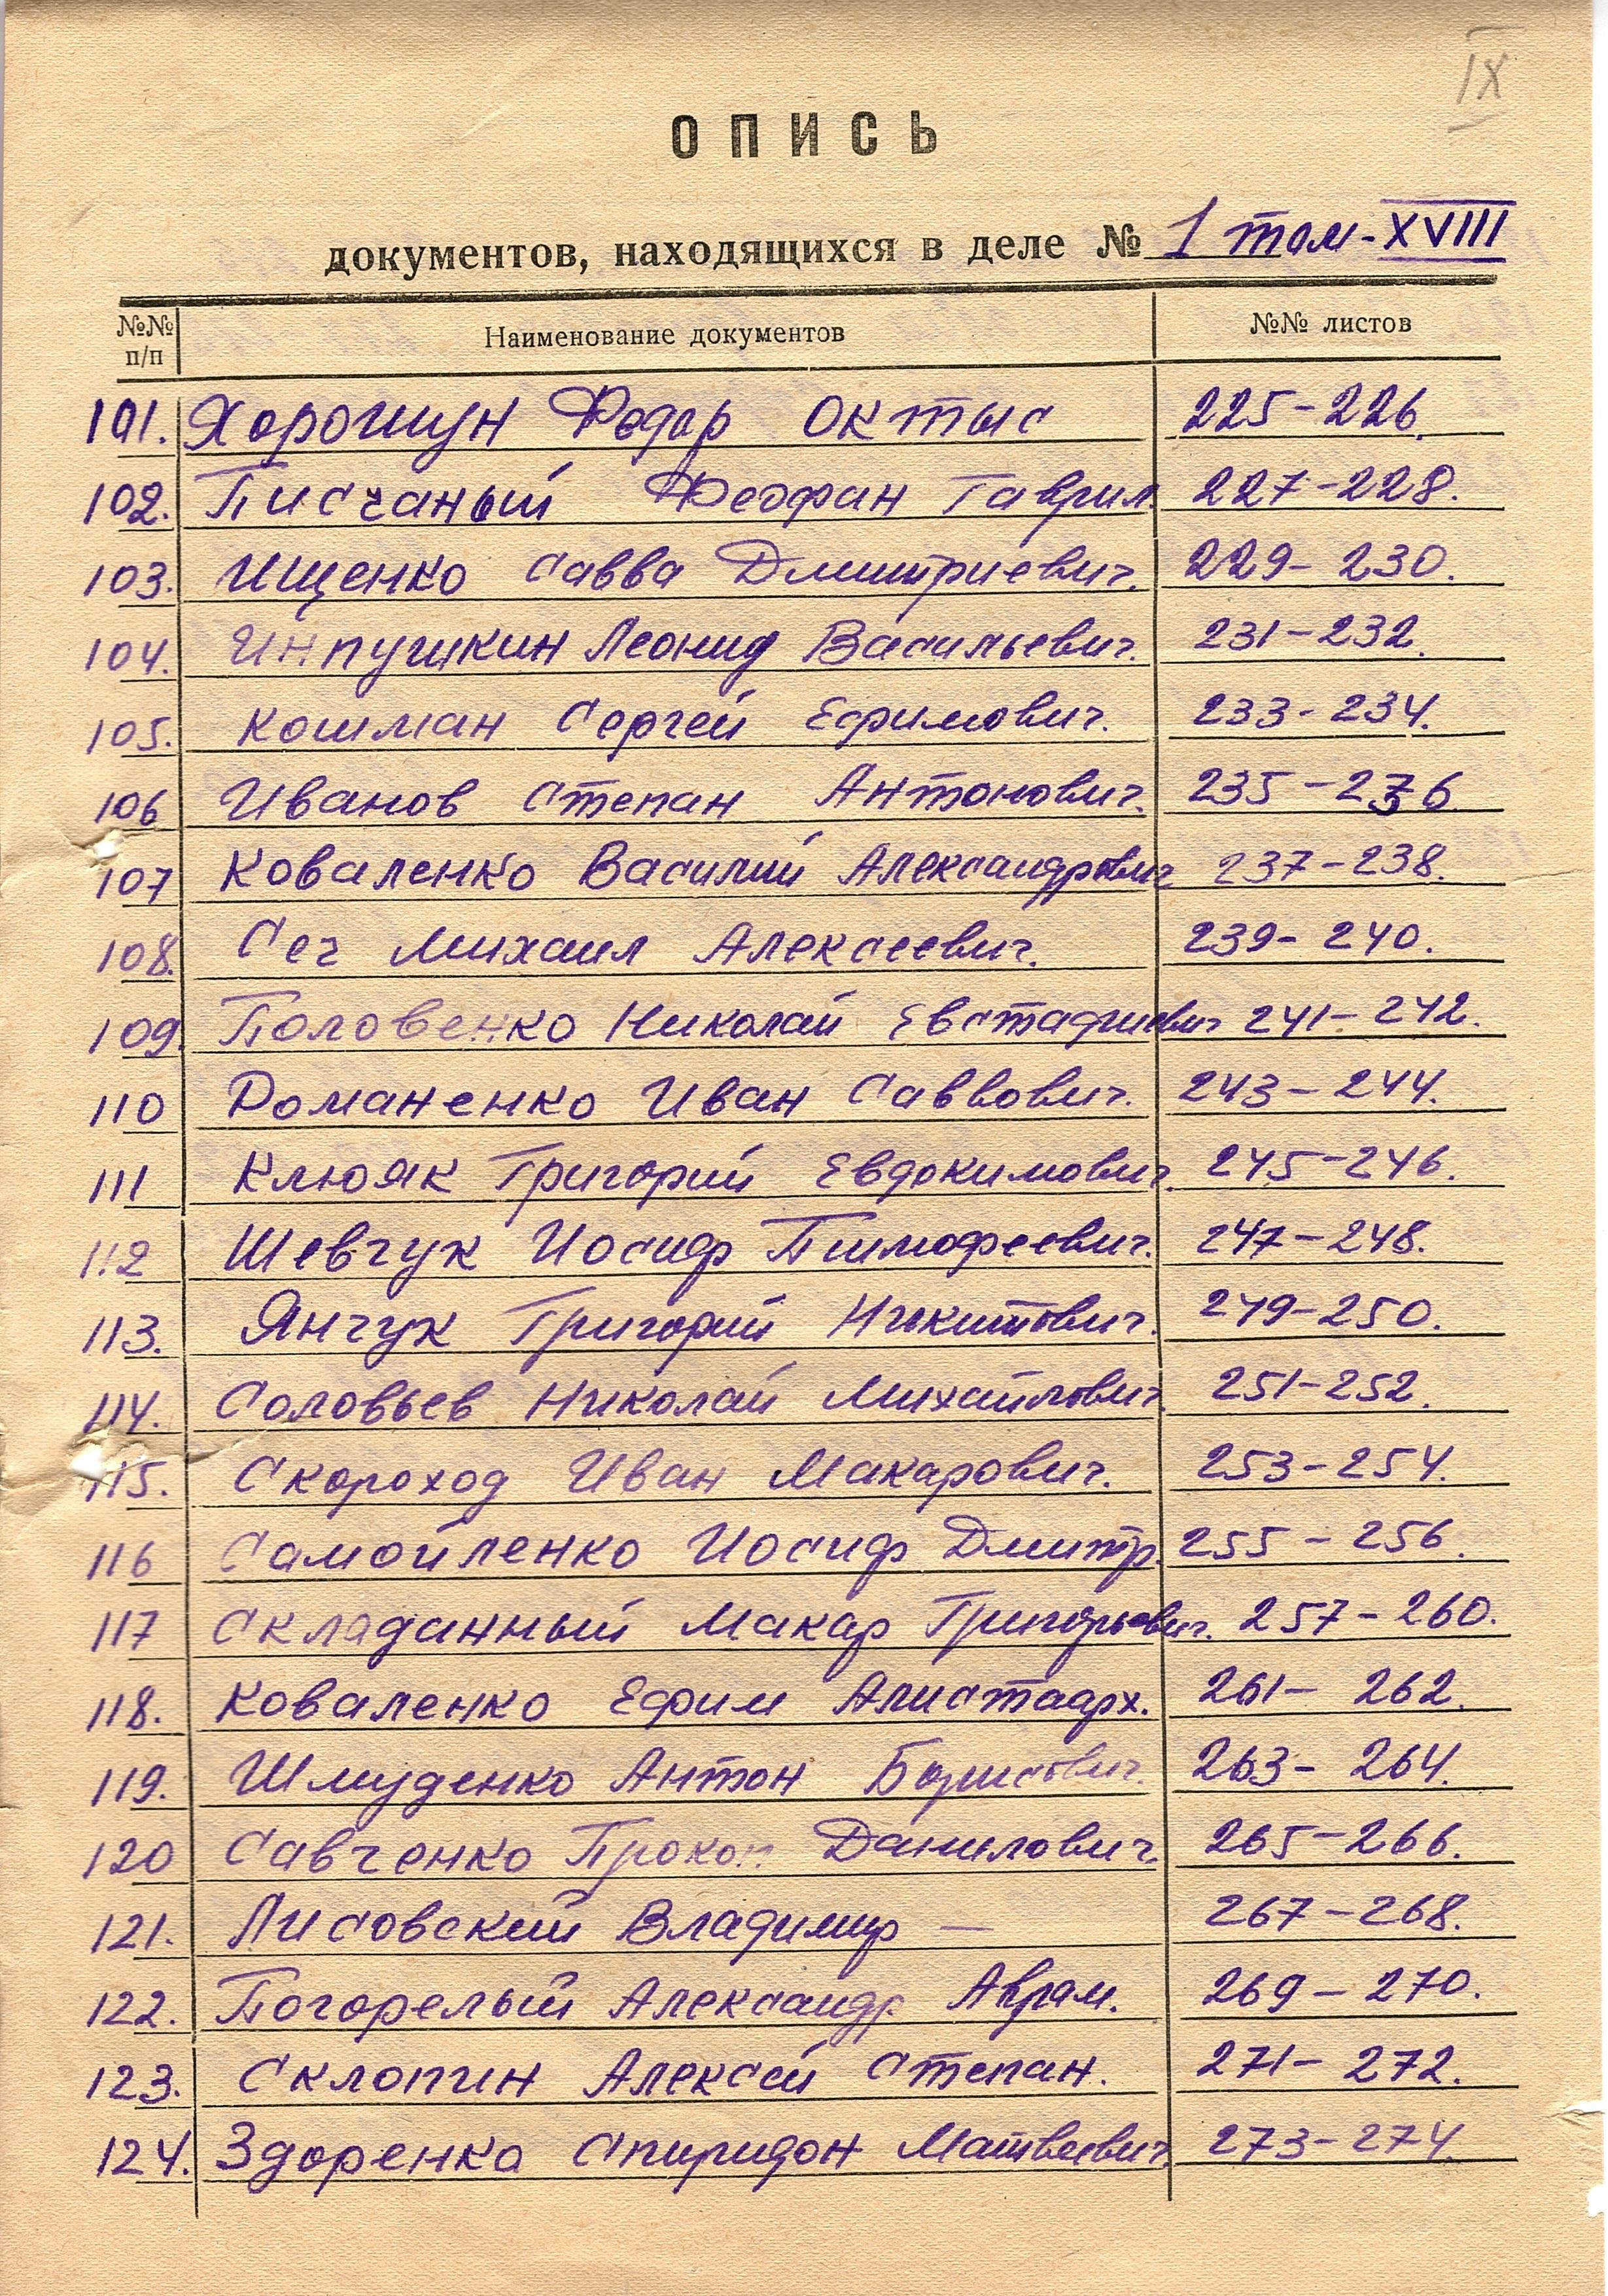 IX
ОПИСЬ
документов, находящихся в деле № 1 том-XVIII
№№ п/п Наименование документов №№ листов
101. Хорошун Федор Октыс 225-226.
102. Писчаный Феофан Гаврил. 227-228.
103. Ищенко Савва Дмитриевич. 229-230.
104. Инпушкин Леонид Васильевич. 231-232.
105. Кошман Сергей Ефимович. 233-234.
106 Иванов Степан Антонович. 235-236
107 Коваленко Василий Александрович 237-238.
108. Сеч Михаил Алексеевич. 239-240.
109. Половенко Николай Евстафиевич 241-242.
110 Романенко Иван Саввович. 243-244.
111 Клюяк Григорий Евдокимович. 245-246.
112 Шевчук Иосиф Тимофеевич. 247-248.
113. Янчук Григорий Никитович. 249-250.
114. Соловьев Николай Михайлович. 251-252.
115. Скороход Иван Макарович. 253-254.
116 Самойленко Иосиф Дмитр. 255-256.
117 Складанный Макар Григорьевич. 257-260.
118. Коваленко Ефим Алистаарх. 261-262.
119. Шмуденко Антон Борисович. 263-264.
120 Савченко Прокоп Данилович. 265-266.
121. Лисовский Владимир — 267-268.
122. Погорелый Александр Аврам. 269-270.
123. Склопин Алексей Степан. 271-272.
124. Здоренко Спиридон Матвеевич. 273-274.